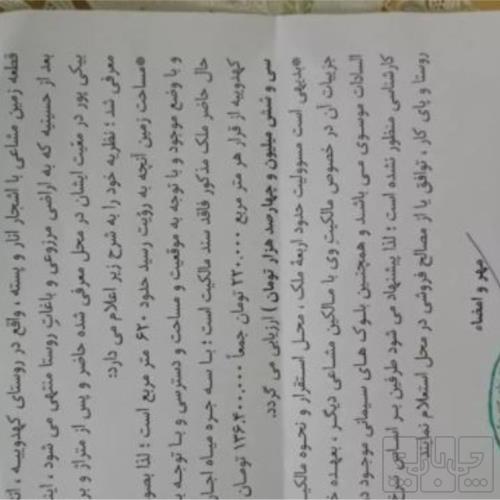 قطعه زمین مشاعی با اشجار انار و پسته ، واقع در روستای کهدوییه ، ان
بعد از حسینیه که به اراضی مزروعی و باغات روستا منتهی می شود ، این
بیکی پور در معیت ایشان در محل معرفی شده حاضر و پس از متراژ و بر
معرفی شد ؛ نظریه خود را به شرح زیر اعلام می دارد:
*مساحت زمین آنچه به رؤیت رسید حدود ۶۲۰ متر مربع است ؛ لذا بصو
و با وضع موجود و با توجه به موقعیت و مساحت و دسترسی و با توجه ب
حال حاضر ملک مذکور فاقد سند مالکیت است ؛ با سه جره میاه اجار
کهدوییه از قرار هر متر مربع ۲۲۰.۰۰۰ تومان جمعاً ۱۳۶.۴۰۰.۰۰۰ تومان
سی و شش میلیون و چهارصد هزار تومان ) ارزیابی می گردد.
*بدیهی است مسوولیت حدود اربعهٔ ملک ، محل استقرار و نحوه مالکی
جزییات آن در خصوص مالکیت وی با مالکین مشاعی دیگر ، بعهده خ
السادات موسوی می باشد و همچنین بلوک های سیمانی موجود د
کارشناسی منظور نشده است ؛ لذا پیشنهاد می شود طرفین بر اساس
روستا و پای کار ، توافق یا از مصالح فروشی در محل استعلام نمایند.
مهر و امضاء
چی با چی